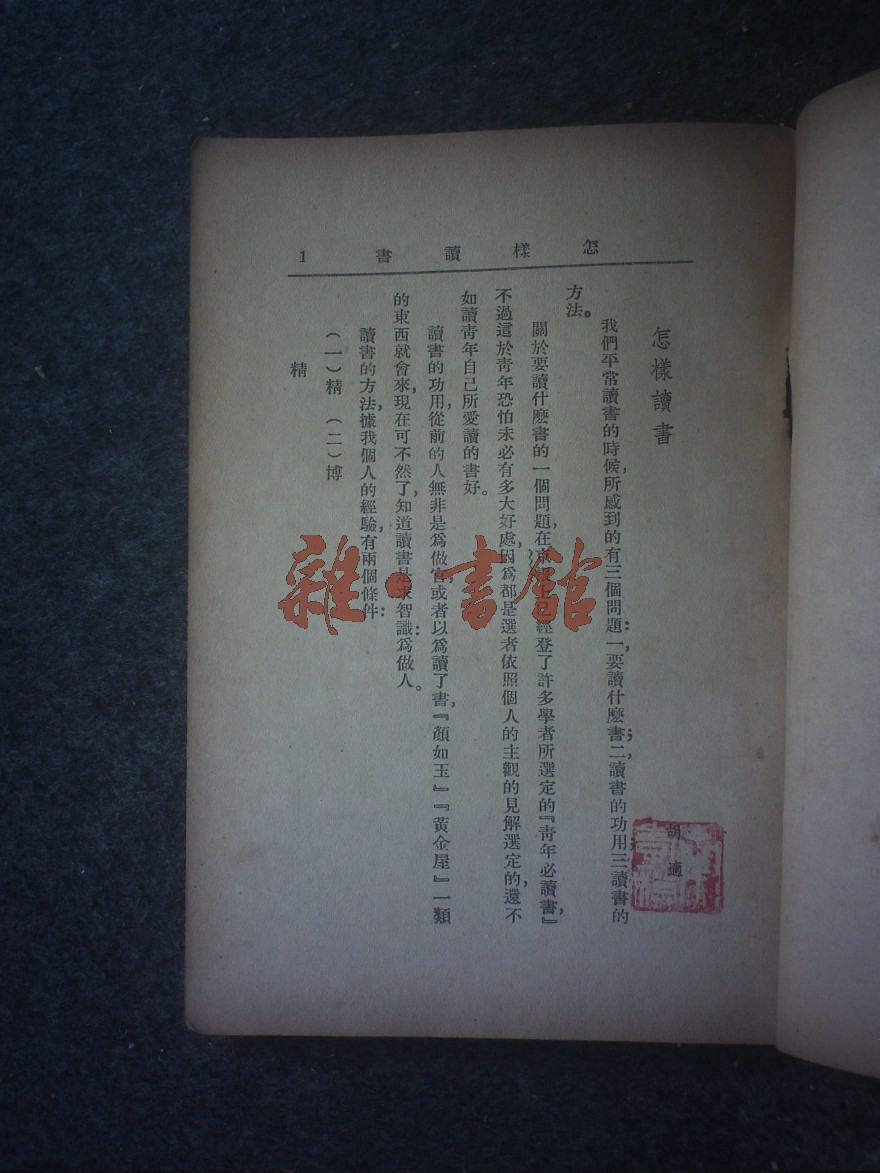 怎樣讀書 1
怎樣讀書
胡適
我們平常讀書的時候,所感到的有三個問題:一,要讀什麽書;二,讀書的功用;三,讀書的
方法。
關於要讀什麽書的一個問題,在京報上經登了許多學者所選定的『靑年必讀書』,
不過這於靑年恐怕未必有多大好處,因爲都是選者依照個人的主觀的見解選定的,還不
如讀靑年自己所愛讀的書好。
讀書的功用,從前的人無非是爲做官,或者以爲讀了書,『顏如玉』『黃金屋』一類
的東西就會來,現在可不然了,知道讀書是求智識爲做人。
讀書的方法,據我個人的經驗,有兩個條件:
(一)精 (二)博
精
雜·書館